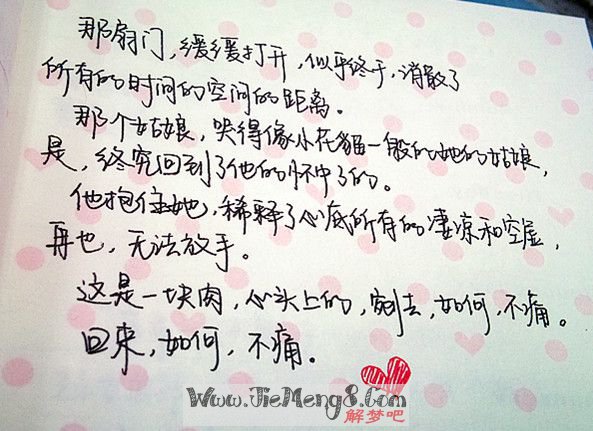 那扇门，缓缓打开，似乎终于，消散了
所有的时间的空间的距离。
那个姑娘，哭得像小花猫一般的她的姑娘，
是，终究回到了他的怀中了的。
他抱住她，稀释了心底所有的凄凉和空虚，
再也，无法放手。
这是一块肉，心头上的，剜去，如何，不痛。
回来，如何，不痛。
Www.JieMeng8.Com
解梦吧